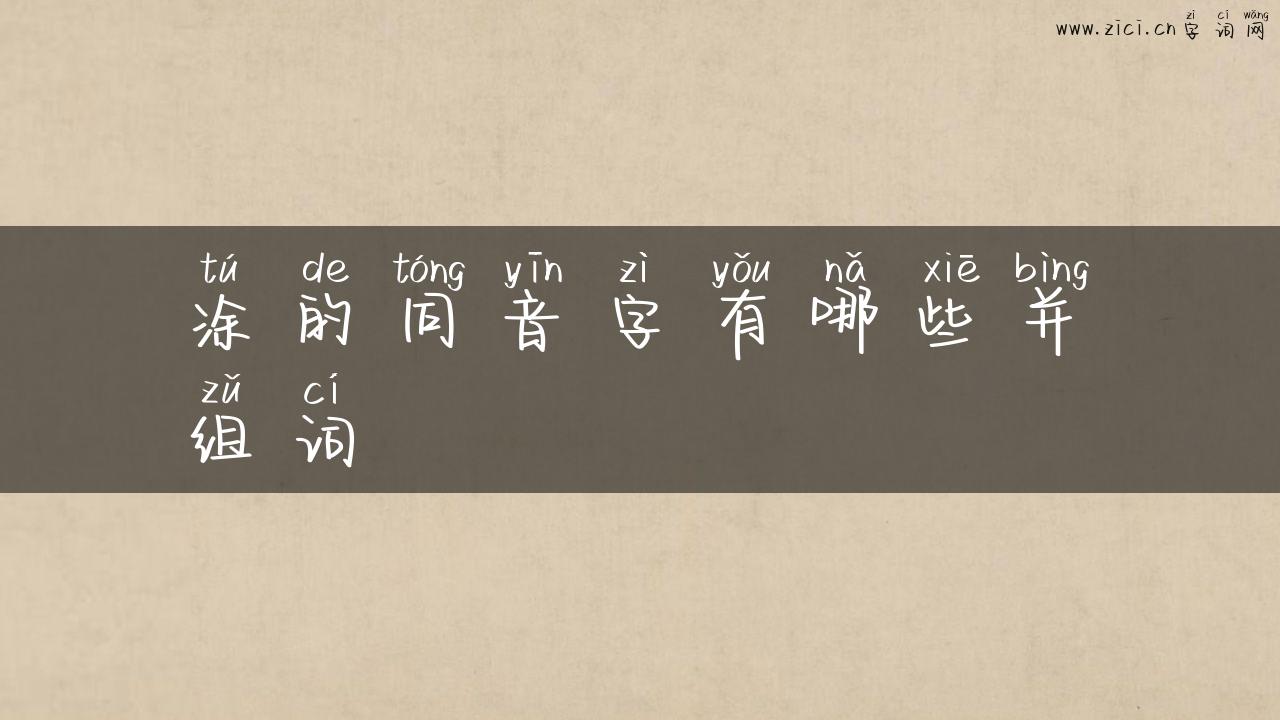 zì cí wǎng
www.zici.cn字词网
tú de tóng yīn zì yǒu nǎ xiē bìng
涂的同音字有哪些并
zǔ cí
组词